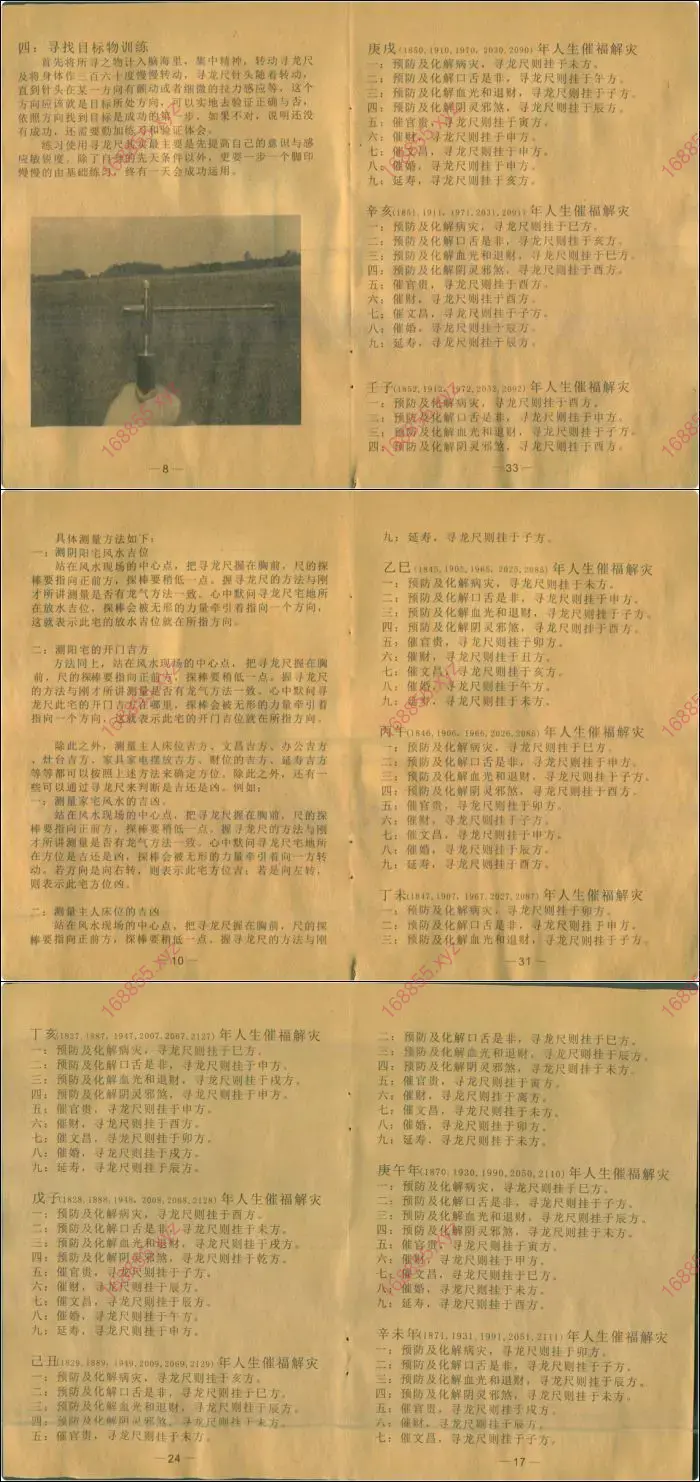 四：寻找目标物训练
首先将所寻之物计入脑海里，集中精神，转动寻龙尺
及将身体作三百六十度慢慢转动，寻龙尺针头随着转动，
直到针头在某一方向有颤动或者细微的拉力感应等，这个
方向应该就是目标所处方向，可以实地去验证正确与否，
依照方向找到目标是成功的第一步。如果不对，说明还没
有成功，还需要勤加练习和验证体会。
练习使用寻龙尺其实最主要是先提高自己的意识与感
应敏锐度，除了自身的先天条件以外，更要一步一个脚印
慢慢的由基础练习，终有一天会成功运用。
—8—
庚戌(1850,1910,1970,2030,2090)年人生催福解灾
一：预防及化解病灾，寻龙尺则挂于未方。
二：预防及化解口舌是非，寻龙尺则挂于午方。
三：预防及化解血光和退财，寻龙尺则挂于子方。
四：预防及化解阴灵邪煞，寻龙尺则挂于辰方。
五：催官贵，寻龙尺则挂于寅方。
六：催财，寻龙尺则挂于申方。
七：催文昌，寻龙尺则挂于申方。
八：催婚，寻龙尺则挂于申方。
九：延寿，寻龙尺则挂于亥方。
辛亥(1851,1911,1971,2031,2091)年人生催福解灾
一：预防及化解病灾，寻龙尺则挂于巳方。
二：预防及化解口舌是非，寻龙尺则挂于亥方。
三：预防及化解血光和退财，寻龙尺则挂于巳方。
四：预防及化解阴灵邪煞，寻龙尺则挂于酉方。
五：催官贵，寻龙尺则挂于酉方。
六：催财，寻龙尺则挂于酉方。
七：催文昌，寻龙尺则挂于子方。
八：催婚，寻龙尺则挂于辰方。
九：延寿，寻龙尺则挂于辰方。
壬子(1852,1912,1972,2032,2092)年人生催福解灾
一：预防及化解病灾，寻龙尺则挂于酉方。
二：预防及化解口舌是非，寻龙尺则挂于申方。
三：预防及化解血光和退财，寻龙尺则挂于子方。
四：预防及化解阴灵邪煞，寻龙尺则挂于酉方。
—33—
具体测量方法如下：
一：测阴阳宅风水吉位
站在风水现场的中心点，把寻龙尺握在胸前，尺的探
棒要指向正前方，探棒要稍低一点。握寻龙尺的方法与刚
才所讲测量是否有龙气方法一致。心中默问寻龙尺宅地所
在放水吉位，探棒会被无形的力量牵引着指向一个方向，
这就表示此宅的放水吉位就在所指方向。
二：测阳宅的开门吉方
方法同上，站在风水现场的中心点，把寻龙尺握在胸
前，尺的探棒要指向正前方，探棒要稍低一点。握寻龙尺
的方法与刚才所讲测量是否有龙气方法一致。心中默问寻
龙尺此宅的开门吉方在哪里，探棒会被无形的力量牵引着
指向一个方向，这就表示此宅的开门吉位就在所指方向。
除此之外，测量主人床位吉方、文昌吉方、办公吉方
、灶台吉方、家具家电摆放吉方、财位的吉方、延寿吉方
等等都可以按照上述方法来确定方位。除此之外，还有一
些可以通过寻龙尺来判断是吉还是凶。例如：
一：测量家宅风水的吉凶。
站在风水现场的中心点，把寻龙尺握在胸前，尺的探
棒要指向正前方，探棒要稍低一点。握寻龙尺的方法与刚
才所讲测量是否有龙气方法一致。心中默问寻龙尺宅地所
在方位是吉还是凶，探棒会被无形的力量牵引着向一方转
动。若方向是向右转，则表示此宅方位吉；若是向左转，
则表示此宅方位凶。
二：测量主人床位的吉凶
站在风水现场的中心点，把寻龙尺握在胸前，尺的探
棒要指向正前方，探棒要稍低一点。握寻龙尺的方法与刚
—10—
九：延寿，寻龙尺则挂于子方。
乙巳(1845,1905,1965,2025,2085)年人生催福解灾
一：预防及化解病灾，寻龙尺则挂于未方。
二：预防及化解口舌是非，寻龙尺则挂于申方。
三：预防及化解血光和退财，寻龙尺则挂于子方。
四：预防及化解阴灵邪煞，寻龙尺则挂于酉方。
五：催官贵，寻龙尺则挂于卯方。
六：催财，寻龙尺则挂于丑方。
七：催文昌，寻龙尺则挂于亥方。
八：催婚，寻龙尺则挂于午方。
九：延寿，寻龙尺则挂于未方。
丙午(1846,1906,1966,2026,2086)年人生催福解灾
一：预防及化解病灾，寻龙尺则挂于巳方。
二：预防及化解口舌是非，寻龙尺则挂于申方。
三：预防及化解血光和退财，寻龙尺则挂于子方。
四：预防及化解阴灵邪煞，寻龙尺则挂于酉方。
五：催官贵，寻龙尺则挂于卯方。
六：催财，寻龙尺则挂于子方。
七：催文昌，寻龙尺则挂于申方。
八：催婚，寻龙尺则挂于辰方。
九：延寿，寻龙尺则挂于酉方。
丁未(1847,1907,1967,2027,2087)年人生催福解灾
一：预防及化解病灾，寻龙尺则挂于卯方。
二：预防及化解口舌是非，寻龙尺则挂于申方。
三：预防及化解血光和退财，寻龙尺则挂于子方。
—31—
丁亥(1827,1887,1947,2007,2067,2127)年人生催福解灾
一：预防及化解病灾，寻龙尺则挂于巳方。
二：预防及化解口舌是非，寻龙尺则挂于申方。
三：预防及化解血光和退财，寻龙尺则挂于戌方。
四：预防及化解阴灵邪煞，寻龙尺则挂于申方。
五：催官贵，寻龙尺则挂于申方。
六：催财，寻龙尺则挂于酉方。
七：催文昌，寻龙尺则挂于卯方。
八：催婚，寻龙尺则挂于戌方。
九：延寿，寻龙尺则挂于辰方。
戊子(1828,1888,1948,2008,2068,2128)年人生催福解灾
一：预防及化解病灾，寻龙尺则挂于酉方。
二：预防及化解口舌是非，寻龙尺则挂于未方。
三：预防及化解血光和退财，寻龙尺则挂于戌方。
四：预防及化解阴灵邪煞，寻龙尺则挂于乾方。
五：催官贵，寻龙尺则挂于子方。
六：催财，寻龙尺则挂于辰方。
七：催文昌，寻龙尺则挂于辰方。
八：催婚，寻龙尺则挂于午方。
九：延寿，寻龙尺则挂于申方。
己丑(1829,1889,1949,2009,2069,2129)年人生催福解灾
一：预防及化解病灾，寻龙尺则挂于亥方。
二：预防及化解口舌是非，寻龙尺则挂于巳方。
三：预防及化解血光和退财，寻龙尺则挂于未方。
四：预防及化解阴灵邪煞，寻龙尺则挂于未方。
五：催官贵，寻龙尺则挂于未方。
—24—
二：预防及化解口舌是非，寻龙尺则挂于未方。
三：预防及化解血光和退财，寻龙尺则挂于辰方。
四：预防及化解阴灵邪煞，寻龙尺则挂于未方。
五：催官贵，寻龙尺则挂于寅方。
六：催财，寻龙尺则挂于离方。
七：催文昌，寻龙尺则挂于未方。
八：催婚，寻龙尺则挂于卯方。
九：延寿，寻龙尺则挂于未方。
庚午年(1870,1930,1990,2050,2110)年人生催福解灾
一：预防及化解病灾，寻龙尺则挂于巳方。
二：预防及化解口舌是非，寻龙尺则挂于子方。
三：预防及化解血光和退财，寻龙尺则挂于辰方。
四：预防及化解阴灵邪煞，寻龙尺则挂于未方。
五：催官贵，寻龙尺则挂于寅方。
六：催财，寻龙尺则挂于甲方。
七：催文昌，寻龙尺则挂于巳方。
八：催婚，寻龙尺则挂于未方。
九：延寿，寻龙尺则挂于酉方。
辛未年(1871,1931,1991,2051,2111)年人生催福解灾
一：预防及化解病灾，寻龙尺则挂于卯方。
二：预防及化解口舌是非，寻龙尺则挂于子方。
三：预防及化解血光和退财，寻龙尺则挂于辰方。
四：预防及化解阴灵邪煞，寻龙尺则挂于未方。
五：催官贵，寻龙尺则挂于戌方。
六：催财，寻龙尺则挂于辰方。
七：催文昌，寻龙尺则挂于子方。
—17—
168855.xyz